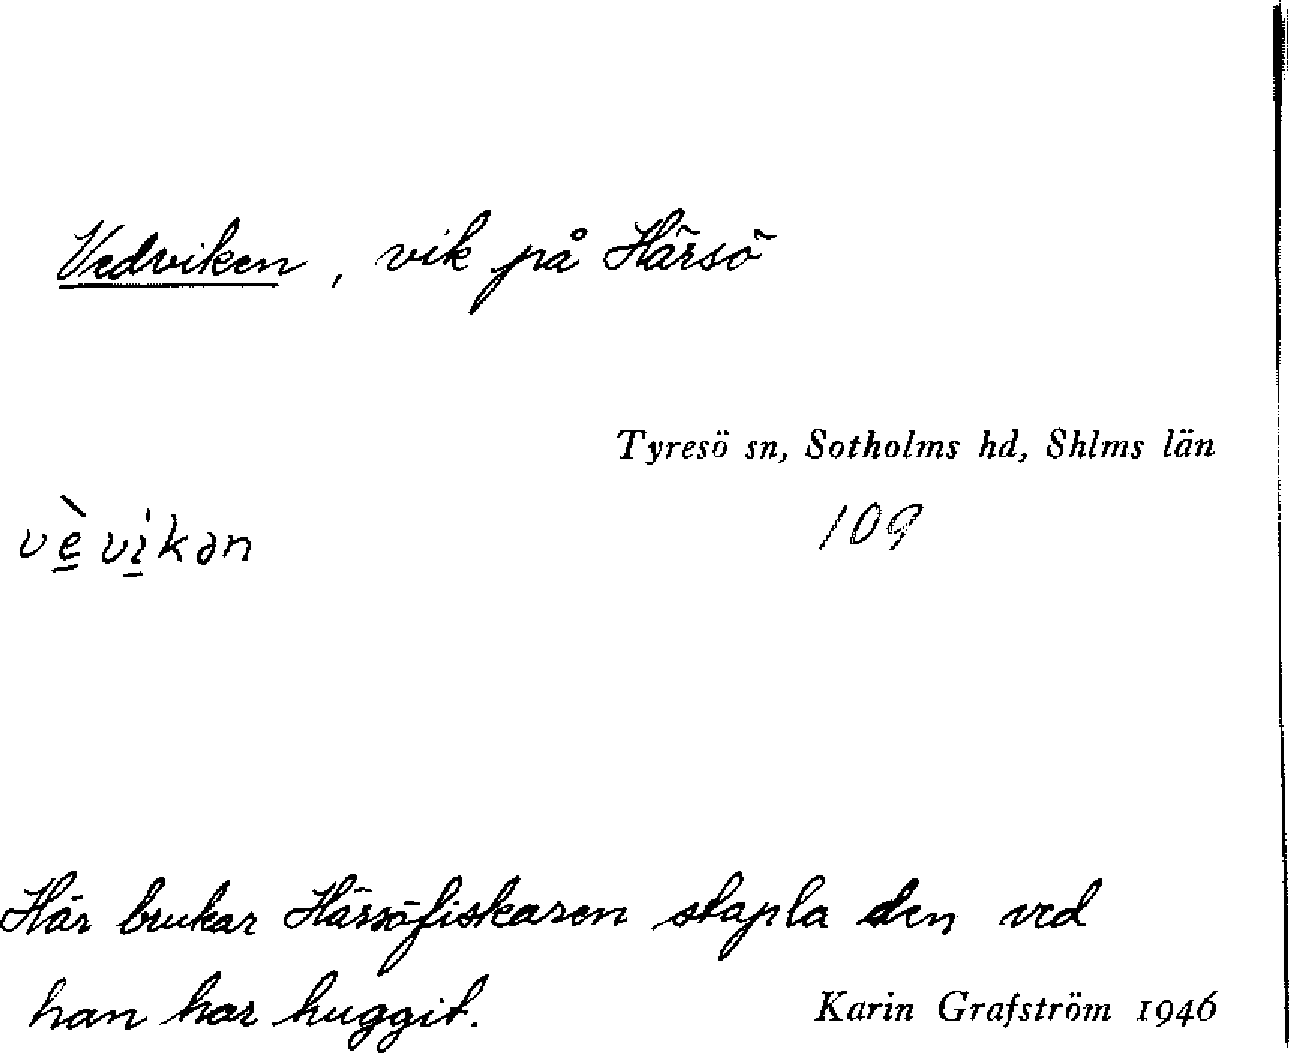 Vedviken, vik på Härsö
Tyresö sn, Sotholms hd, Shlms län
109
vè̱vi̱̍kən
Här brukar Härsöfiskaren stapla den ved
han har huggit.
Karin Grafström 1946